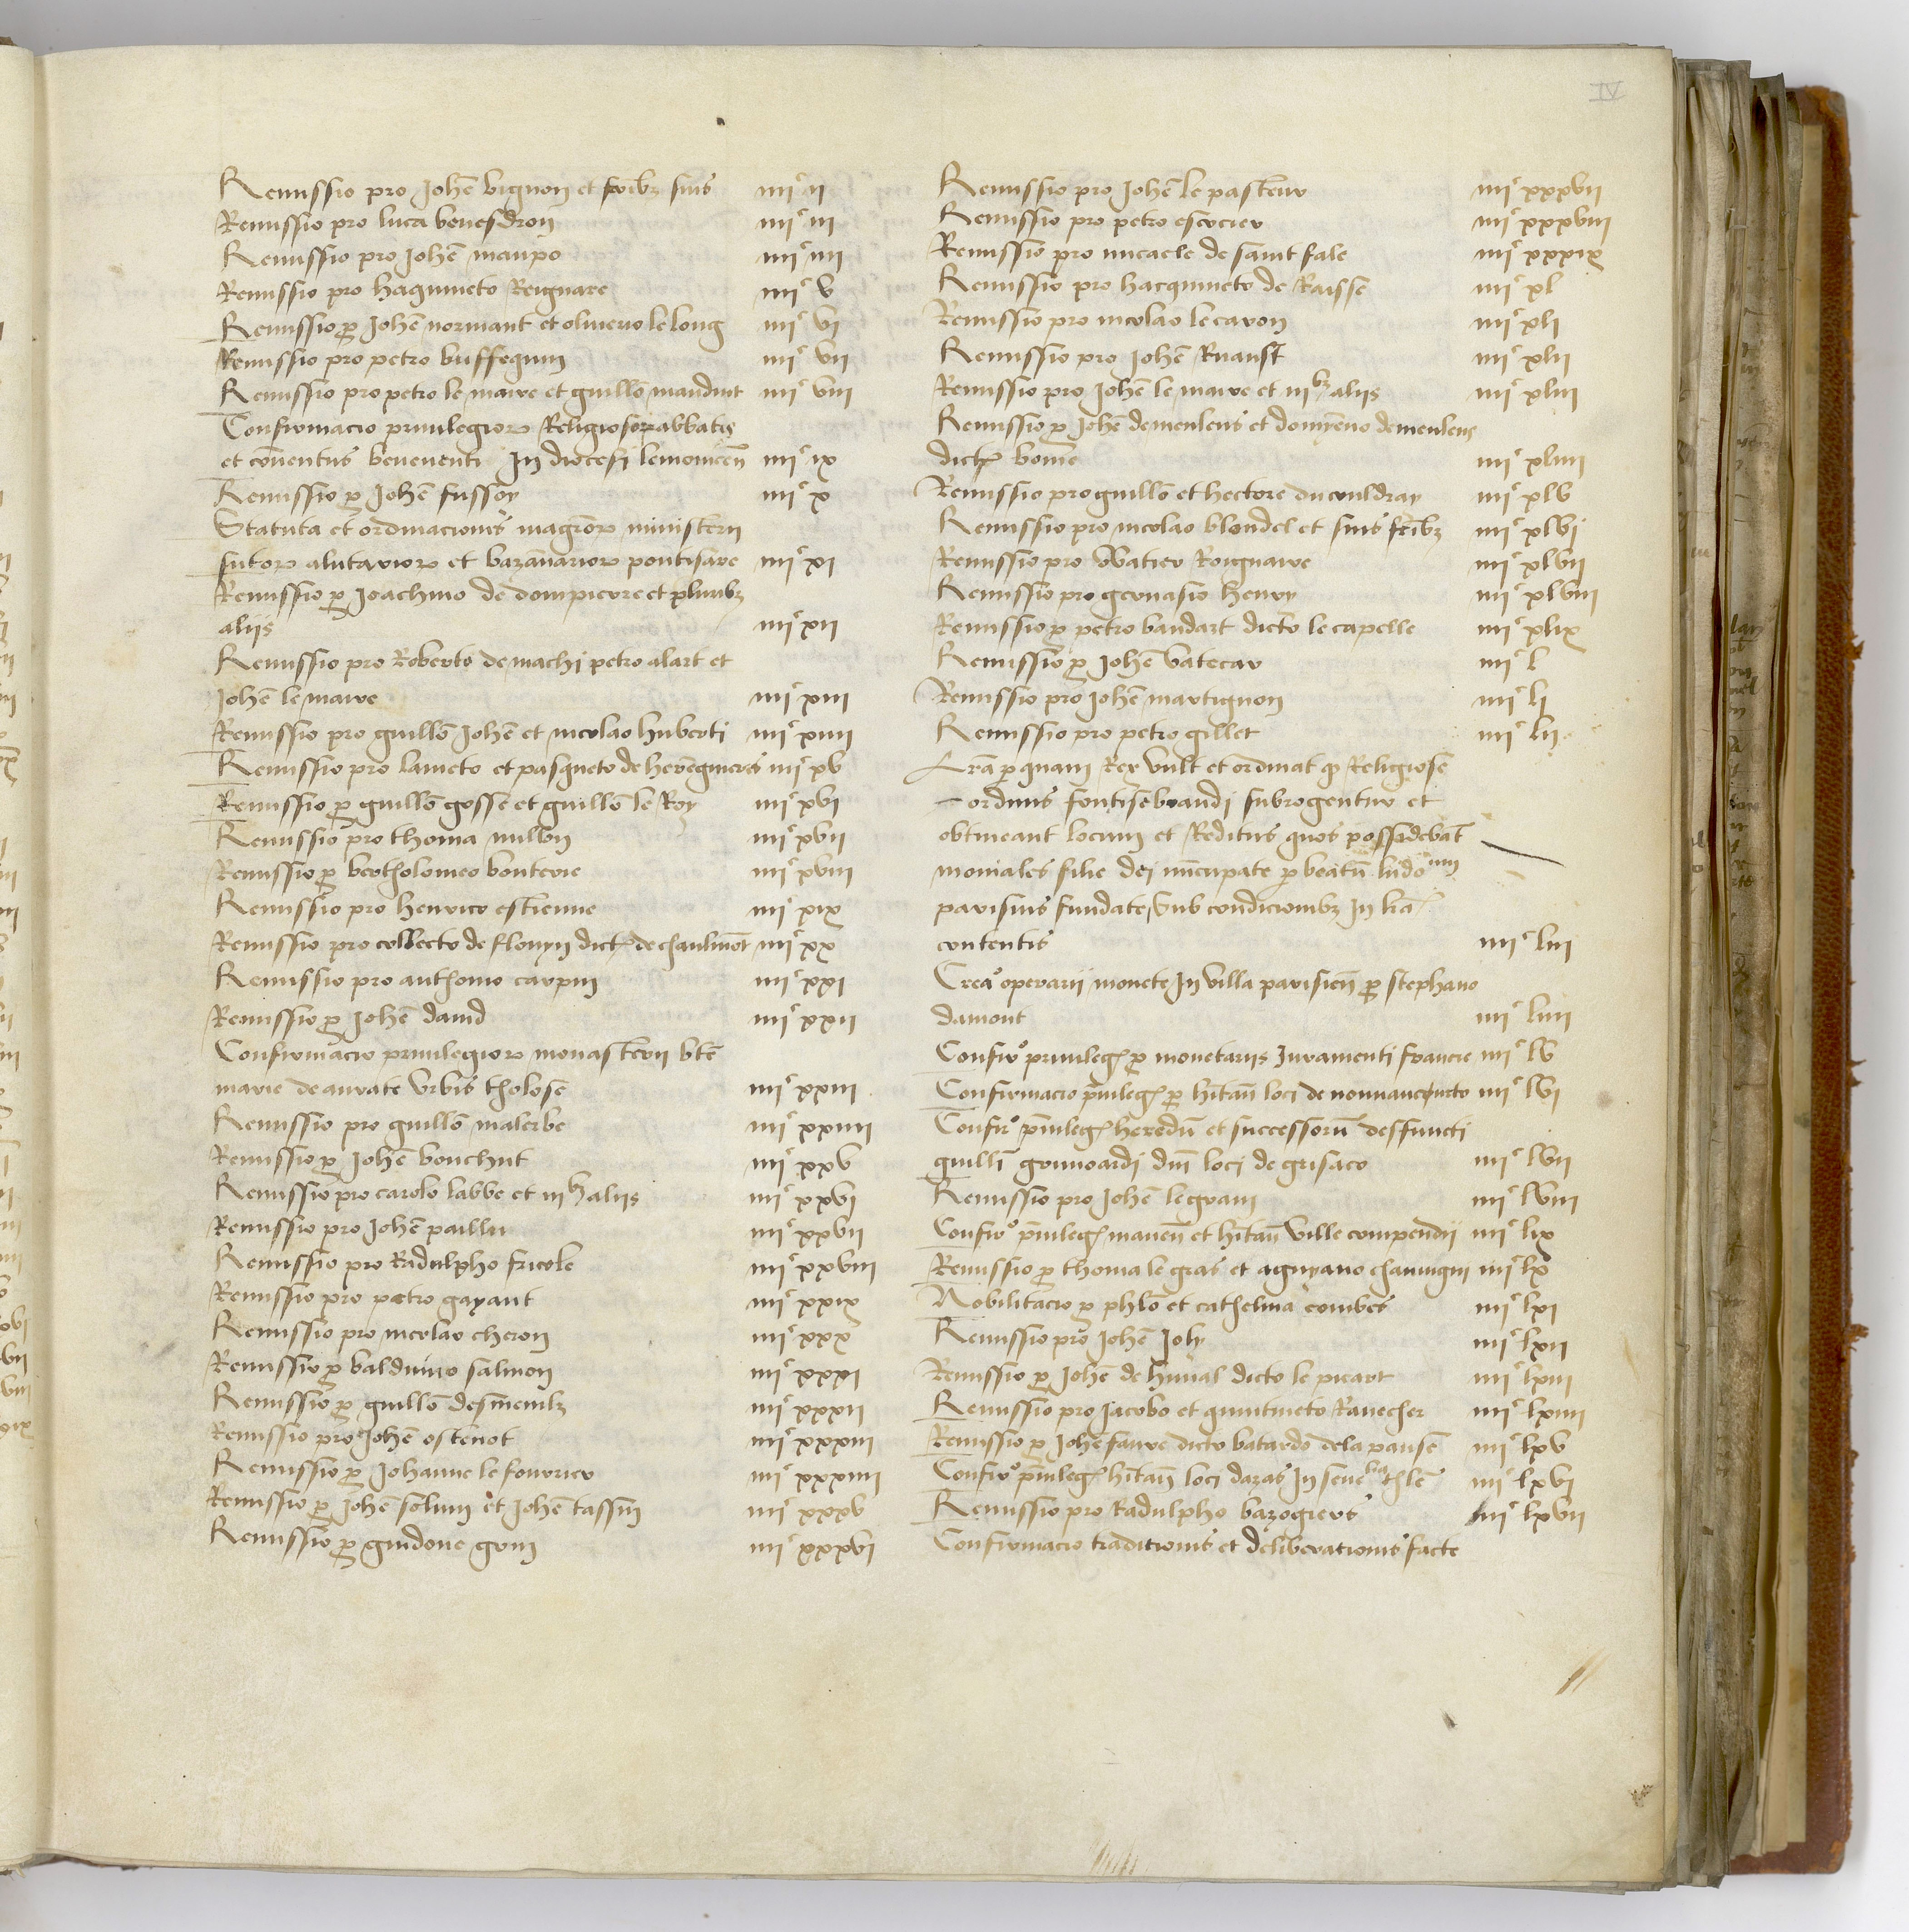 IV
Remissio pro Johēn bignon et frībz suis iiiiᶜ ii
Remissio pro luca benesdron iiiiᶜ iii
Remissio pro Johēn maupo iiiiᶜ iiii
Remissio pro haquineto Reignare iiiiᶜ v
Remissio ꝓ Johēn normant et oliuerio le long iiiiᶜ vi
Remissio pro petro buffequin iiiiᶜ vii
Remissio pro petro le maire et guillō mauduit iiiiᶜ viii
Confirmacio priuilegioꝝ Religiosoꝝ abbatis
et cōuentus beneuenti In diocesi lemouiceñ iiiiᶜ ix
Remissio ꝓ Johēn fussoy iiiiᶜ x
Statuta et ordinacionis magroꝝ ministerii
sutoꝝ alutarioꝝ et bazānarioꝝ pontisare iiiiᶜ xi
Remissio ꝓ Joachino de dompierre et pluribz
aliis iiiiᶜ xii
Remissio pro Roberto de machi petro alart et
Johēn le maire iiiiᶜ xiii
Remissio pro guillō Johēn et nicolao huberti iiiiᶜ xiiii
Remissio pro lameto et pasqueto de herēguieres iiiiᶜ xv
Remissio ꝓ guillō gosse et guillō le Roy iiiiᶜ xvi
Remissio pro thoma millon iiiiᶜ xvii
Remissio ꝓ bertholomeo bonterre iiiiᶜ xviii
Remissio pro henrico estienne iiiiᶜ xix
Remissio pro collecto de flouyn dict de chaulmōt iiiiᶜ xx
Remissio pro anthonio carpin iiiiᶜ xxi
Remissio ꝓ Johēn dauid iiiiᶜ xxii
Confirmacio priuilegioꝝ monasterii btē
marie de aurate vrbis tholose iiiiᶜ xxiii
Remissio pro guillō malerbe iiiiᶜ xxiiii
Remissio ꝓ Johēn bouchut iiiiᶜ xxv
Remissio pro carolo labbe et iiibz aliis iiiiᶜ xxvi
Remissio pro Johēn paillu iiiiᶜ xxvii
Remissio pro Radulpho fricole iiiiᶜ xxviii
Remissio pro petro gayant iiiiᶜ xxix
Remissio pro nicolao cheron iiiiᶜ xxx
Remissio ꝓ balduino salmon iiiiᶜ xxxi
Remissio ꝓ guillō desmeulz iiiiᶜ xxxii
Remissio pro Johēn ostenot iiiiᶜ xxxiii
Remissio ꝓ Johanne le fourrier iiiiᶜ xxxiiii
Remissio ꝓ Johēn solun et Johēn tassin iiiiᶜ xxxv
Remissio ꝓ guidone grin iiiiᶜ xxxvi
Remissio pro Johēn le pasteur iiiiᶜ xxxvii
Remissio pro petro escrcier iiiiᶜ xxxviii
Remissio pro micaele de saint fale iiiiᶜ xxxix
Remissio pro hacquineto de Raisse iiiiᶜ xl
Remissio pro nicolao le caron iiiiᶜ xli
Remissio pro Johēn Ruaust iiiiᶜ xlii
Remissio pro Johēn le maire et iiibz aliis iiiiᶜ xliii
Remissio ꝓ Johē demenlens et domyēno demenlens
dict bome iiiiᶜ xliiii
Remissio pro guillō et hectore du couldray iiiiᶜ xlv
Remissio pro nicolao blondel et suis frībz iiiiᶜ xlvi
Remissio pro Watier Roignaire iiiiᶜ xlvii
Remissio pro geruasio henry iiiiᶜ xlviii
Remissio ꝓ petro baudart dicto le capelle iiiiᶜ xlix
Remissio ꝓ Johēn batecar iiiiᶜ l
Remissio pro Johēn martignon iiiiᶜ li
Remissio pro petro gillet iiiiᶜ lii
Lrā ꝑ quam Rex vult et ordinat qᵈ Religiose
ordinis fontisebraudi subrogentur et
obtineant locum et Reditus quos possidebāt
moniales filie dei nūcupate ꝑ beatū ludouicum
parisius fundate, sub condicionibz in lrā
contentis iiiiᶜ liii
Creaᵒ operarii monete In villa parisieñ ꝓ stephano
damont iiiiᶜ liiii
Confirᵒ priuileg ꝓ monetariis Iuramenti francie iiiiᶜ lv
Confirmacio p̄uileg ꝓ hītañ loci de nonnancuncto iiiiᶜ lvi
Confirᵒ p̄uileg heredū et successorū deffuncti
guillī gounoardi dnī loci de grisaco iiiiᶜ lvii
Remissio pro Johēn legrain iiiiᶜ lviii
Confirᵒ p̄uileg maneñ et hītañ ville compendii iiiiᶜ lix
Remissio ꝓ thoma le gras et aguyano chauuigni iiiiᶜ lx
Nobilitacio ꝓ phlō et cathelina combes iiiiᶜ lxi
Remissio pro Johēn Joly iiiiᶜ lxii
Remissio ꝓ Johēn de hinial dicto le picart iiiiᶜ lxiii
Remissio pro Jacobo et quintineto Rauecher iiiiᶜ lxiiii
Remissio ꝓ Johēn faure dicto batardo de la panse iiiiᶜ lxv
Confirᵒ p̄uileg hītañ loci dazas In seneᶜⁱᵃ thlē iiiiᶜ lxvi
Remissio pro Radulpho bazogiers iiiiᶜ lxvii
Confirmacio traditionis et deliberationis facte